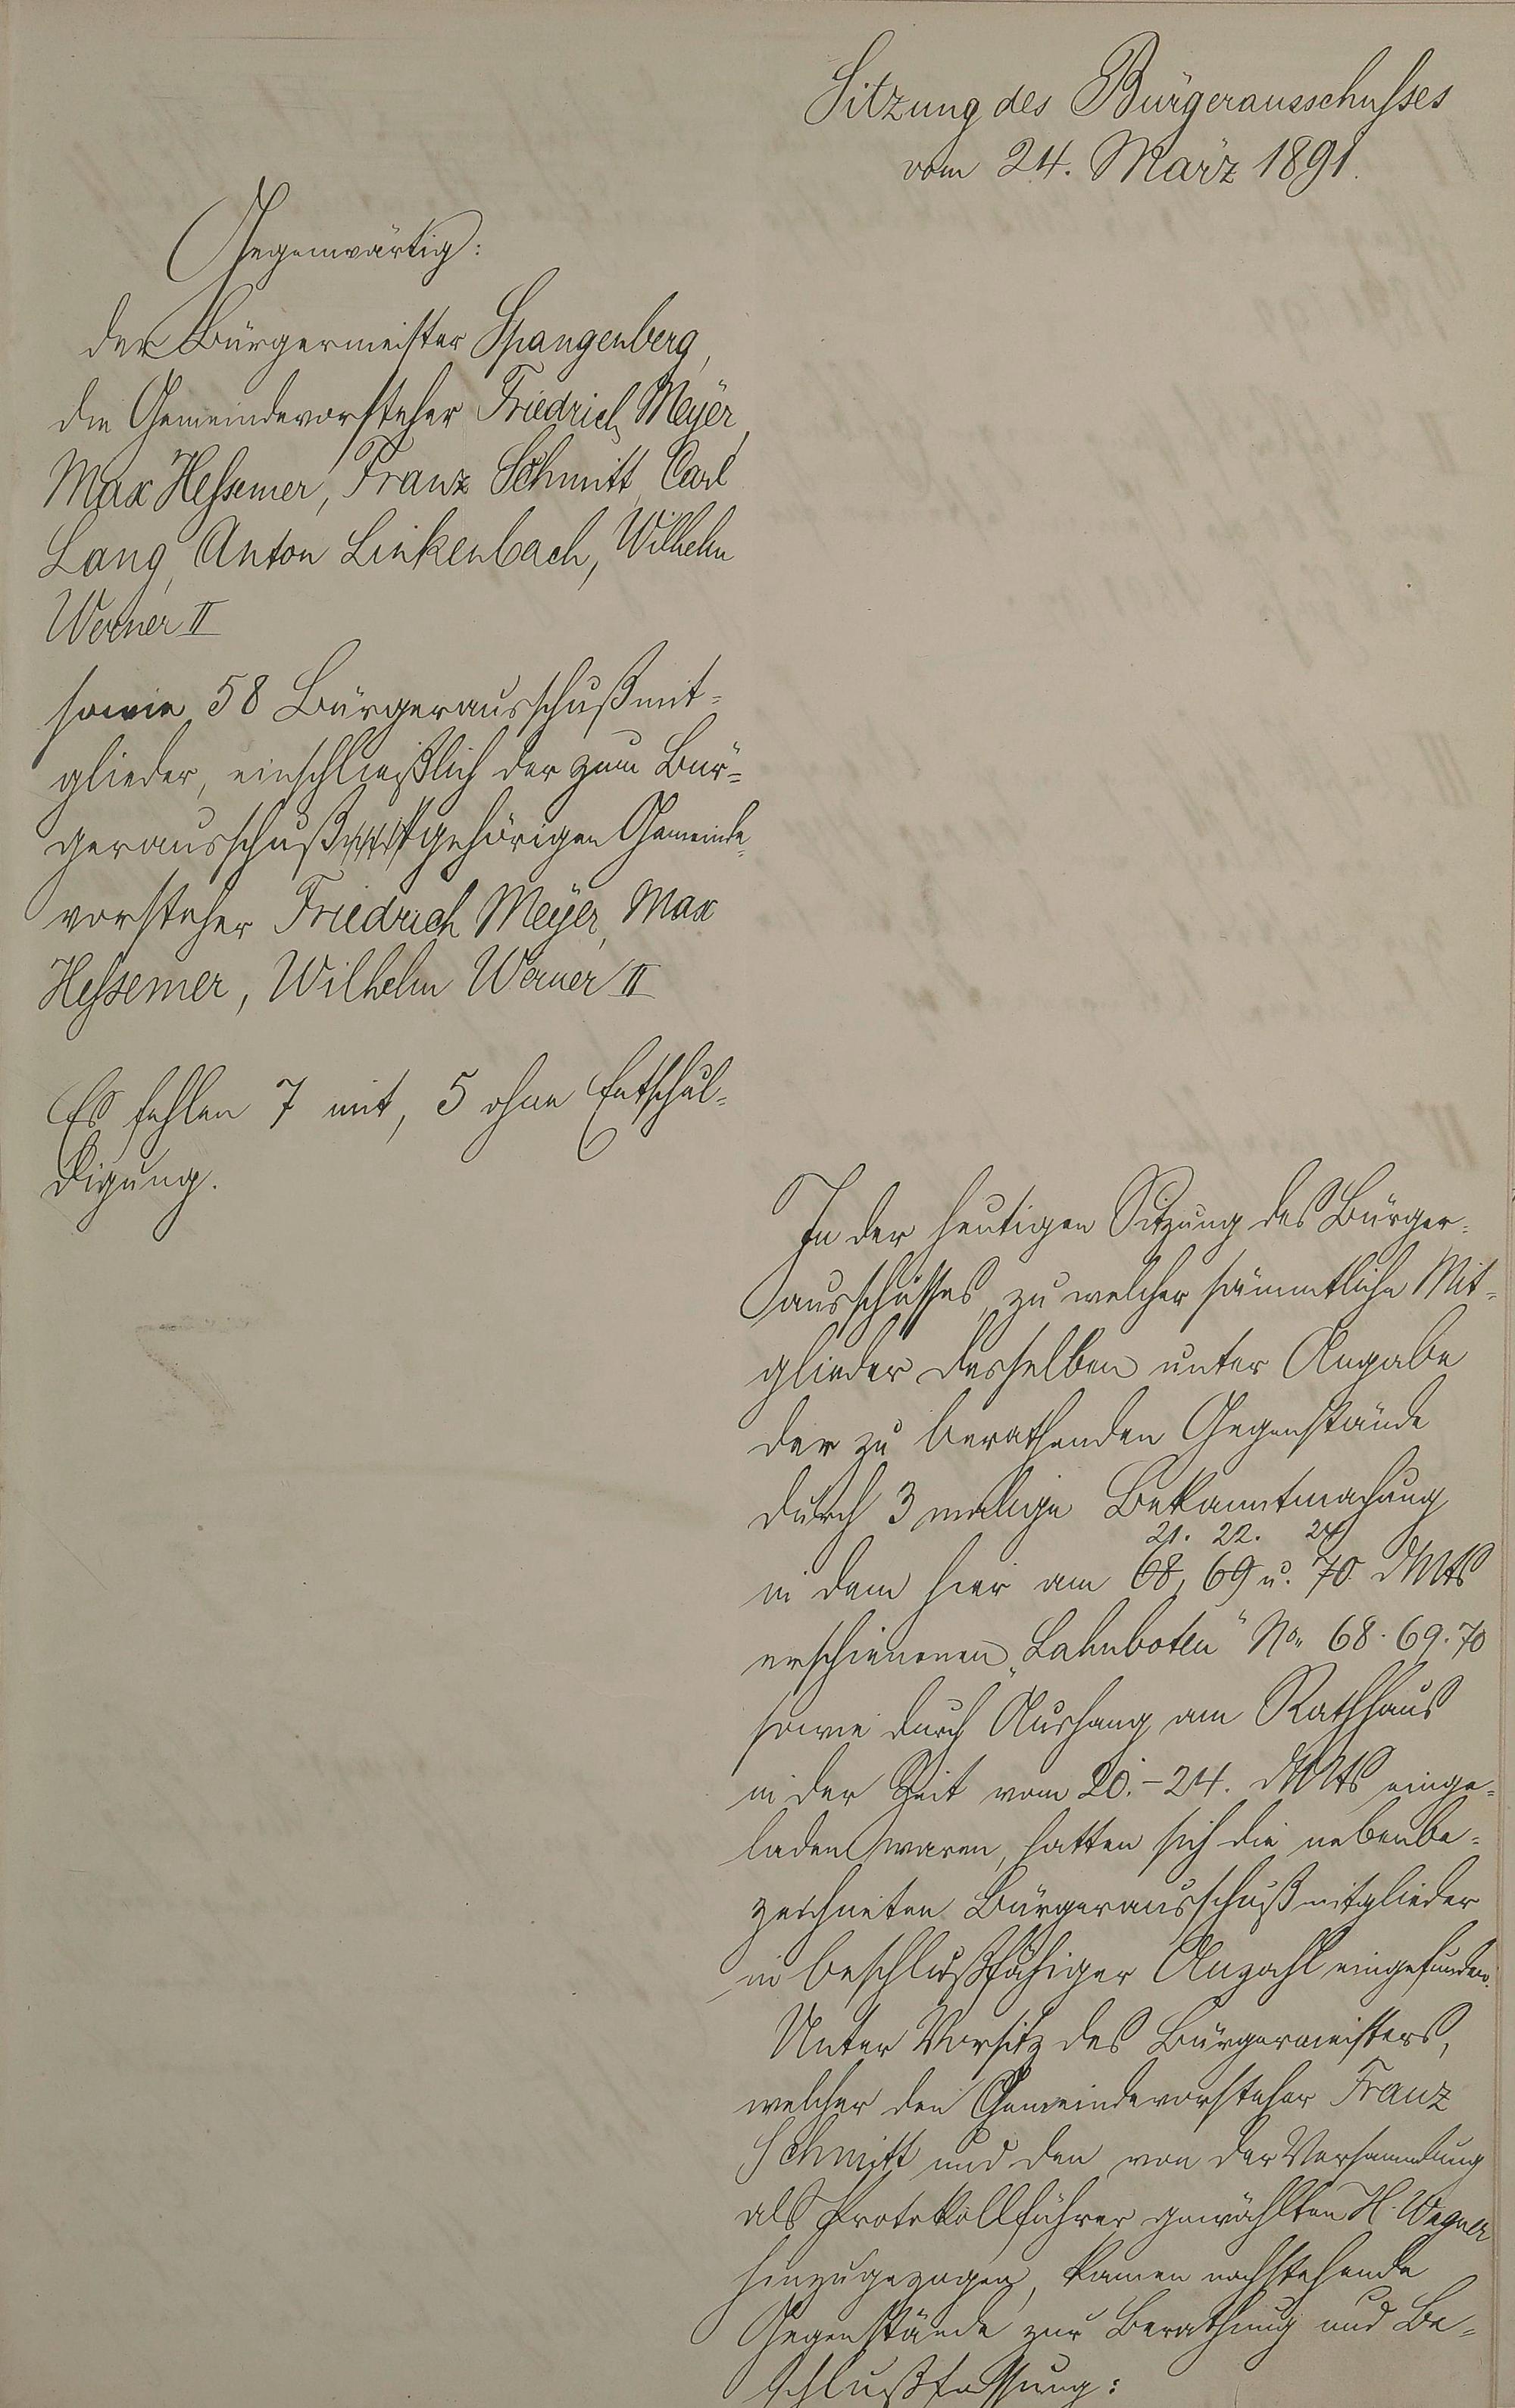 Sitzung des Bürgerausschusses
vom 24. März 1891.
Gegenwärtig:
der Bürgermeister Spangenberg,
die Gemeindevorsteher Friedrich Meyer,
Max Hessemer, Franz Schmitt, Carl
Lang, Anton Linkenbach, Wilhelm
Werner II
sowie 58 Bürgerausschußmit-
glieder, einschließlich der zum Bür-
gerausschuß gehörigen Gemeinde-
vorsteher Friedrich Meyer, Max
Hessemer, Wilhelm Werner II
Es fehlen 7 mit, 5 ohne Entschul-
digung.
In der heutigen Sitzung des Bürger-
ausschusses, zu welcher sämmtliche Mit-
glieder desselben unter Angabe
der zu berathenden Gegenstände
durch 3 malige Bekanntmachung
21. 22. 24
in dem hier am 68, 69 u. 70 dMts
erschienenen „Lahnboten" No. 68. 69. 70
sowie durch Aushang am Rathhaus
in der Zeit vom 20. - 24. dMts einge-
laden waren, hatten sich die nebenbe-
zeichneten Bürgerausschußmitglieder
in beschlußfähiger Anzahl eingefunden.
Unter Vorsitz des Bürgermeisters,
welcher den Gemeindevorsteher Franz
Schmitt und den von der Versammlung
als Protokollführer gewählten H. Wagner
hinzugezogen, kamen nachstehende
Gegenstände zur Berathung und Be-
schlußfassung: